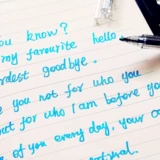 ou know?
my favourite hello,
rdest goodbye.
e you not for who you
ut for who I am before you
of you every day, your